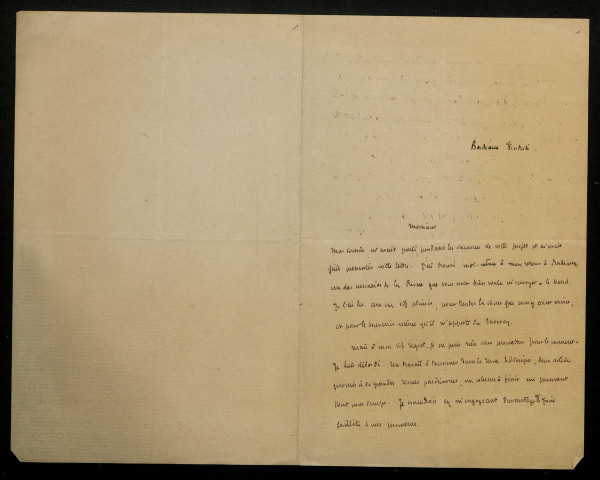 Bordeaux Vendredi
Monsieur
Mon cousin m'avait parlé pendant les vacances de votre projet et m'avait
fait votre lettre. J'ai trouvé moi-même à mon retour à Bordeaux,
un des numéros de la Revue que vous avez bien voulu m'envoyer. le lisant,
Je l'ai lu avec un vif plaisir, pour toutes les choses que vous y avez mises,
et pour le souvenir même qu'il m'apporte du
mais à mon vif regret, je ne puis rien vous promettre pour le moment.
Je suis débordé. Un travail à terminer dans la Revue historique, deux articles
promis à de grandes revues parisiennes, un volume à finir me prennent
tout mon temps. Je craindrais en m'engageant davantage de faire
faillite à mes promesses.